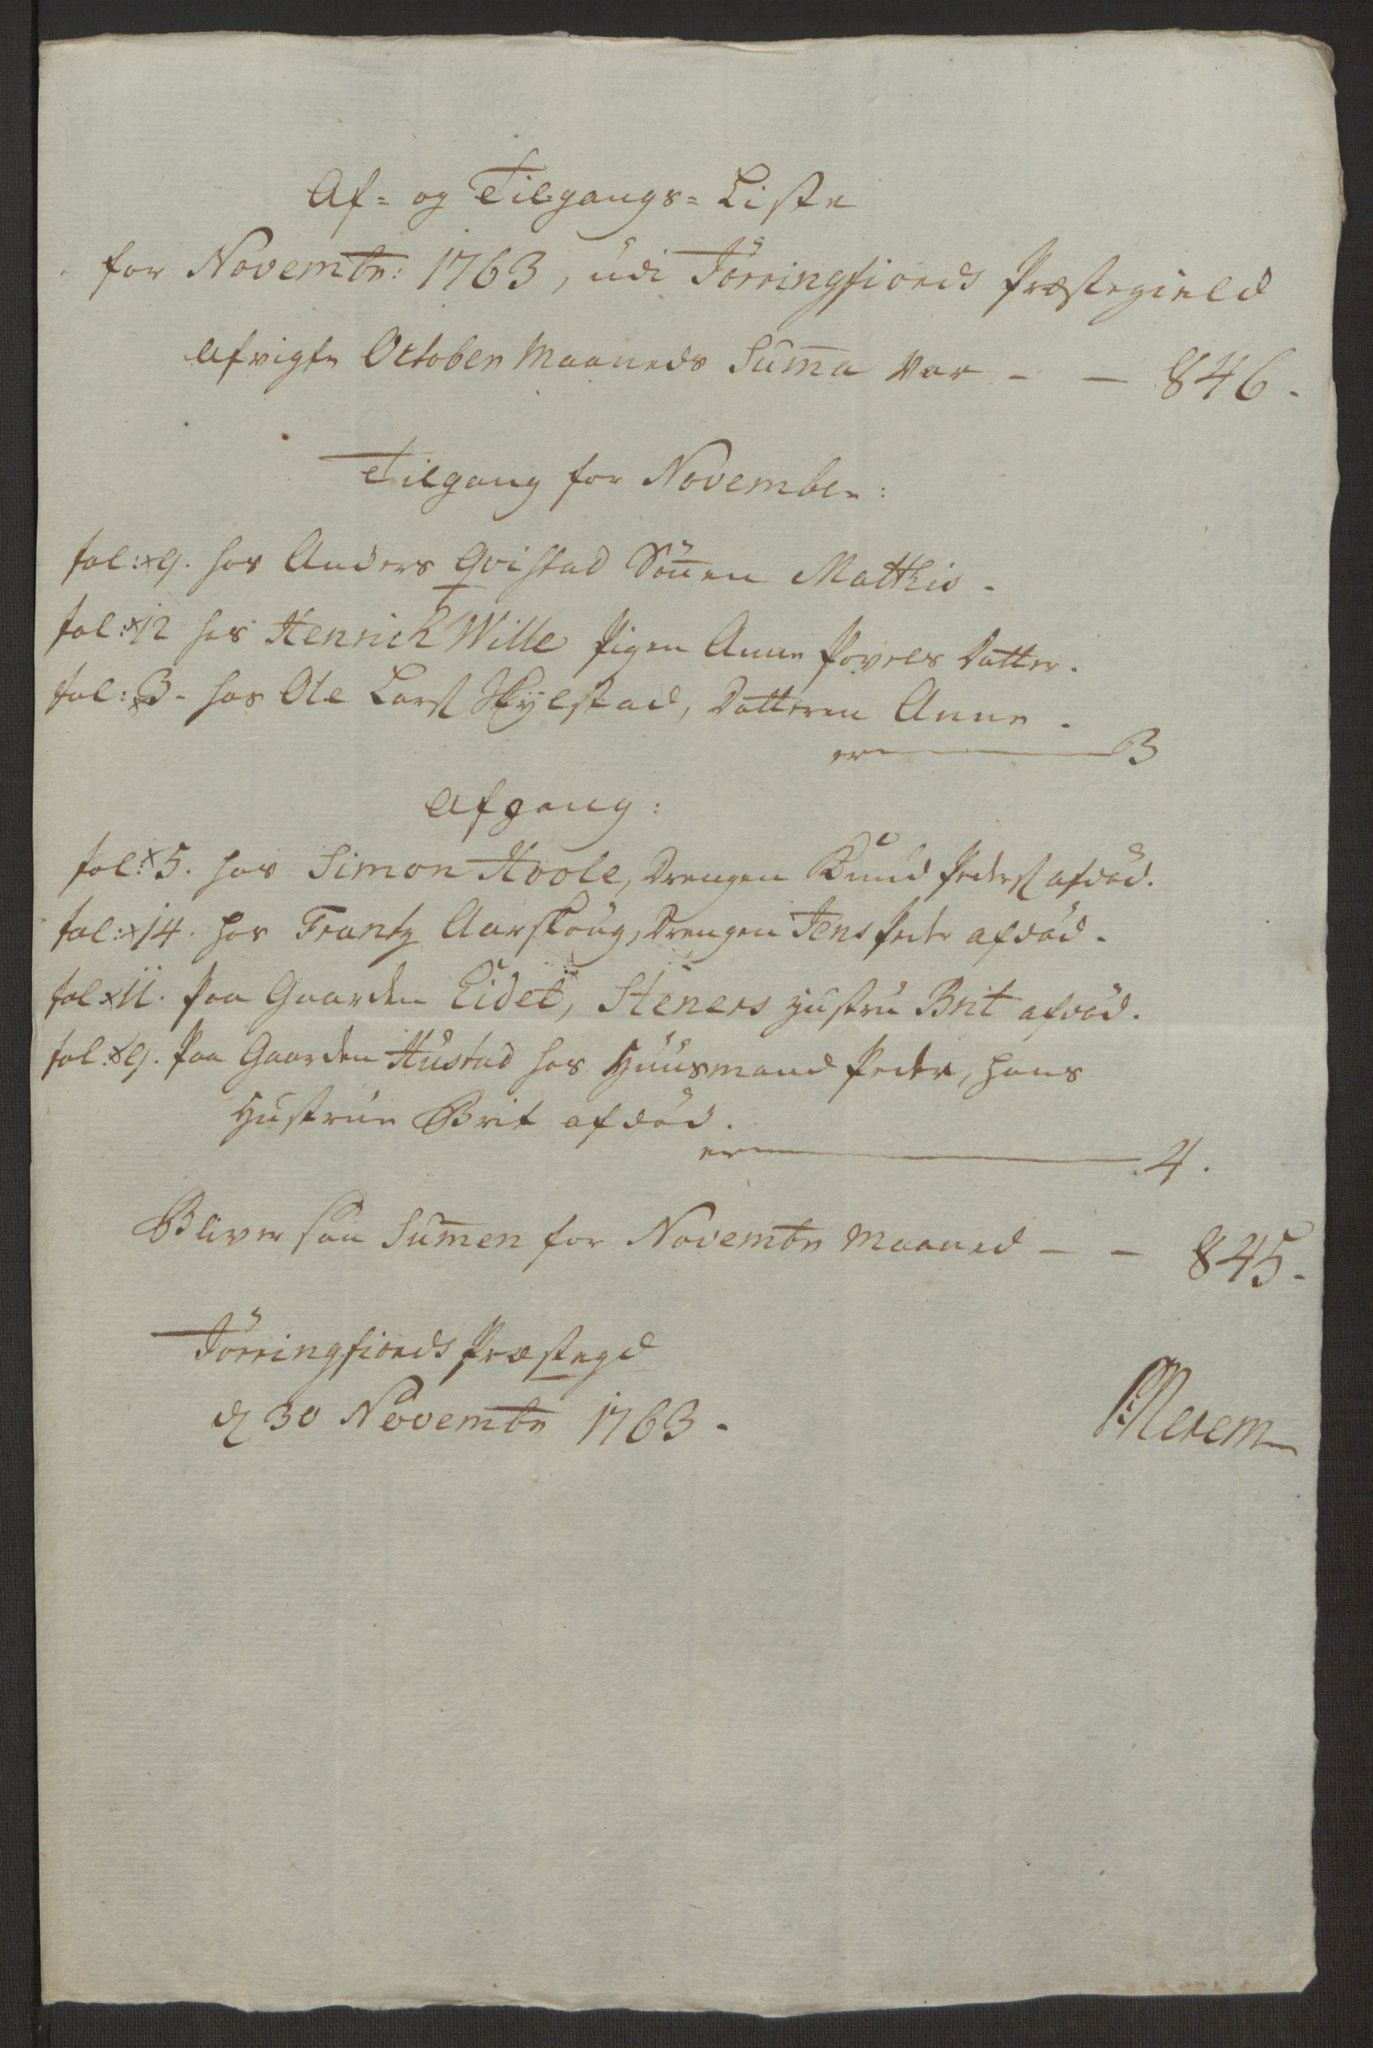 Af= og Tilgangs= Liste
for Novembr: 1763, udi Törringfiords Præstegield
Afvigte October Maaneds Suma var - - 846.
Tilgang for November:
fol: 9. hos Anders Qvistad Sönen Mathis.
fol: 12 hos Henrich Wille Pigen Anne Povels Datter.
fol: 3. hos Ole Lars Skylstad, Datteren Anne.
er 3
Afgang:
fol: 5. hos Simon Hoole, Drengen Knud Peders afdöd.
fol: 14. hos Frantz Aarskoug, Drengen Jens Peder afdöd.
fol 11. paa Gaarden Eidet, Steners Hustru Brit afdöd.
fol: 9. Paa Gaarden Hustad hos Huusmand Peder, hans
Hustrue Brit afdöd.
er 4.
Bliver saa Sumen for Novembr Maaned - - 845.
Törringfiords Præstegd
d 30 Novembr 1763.